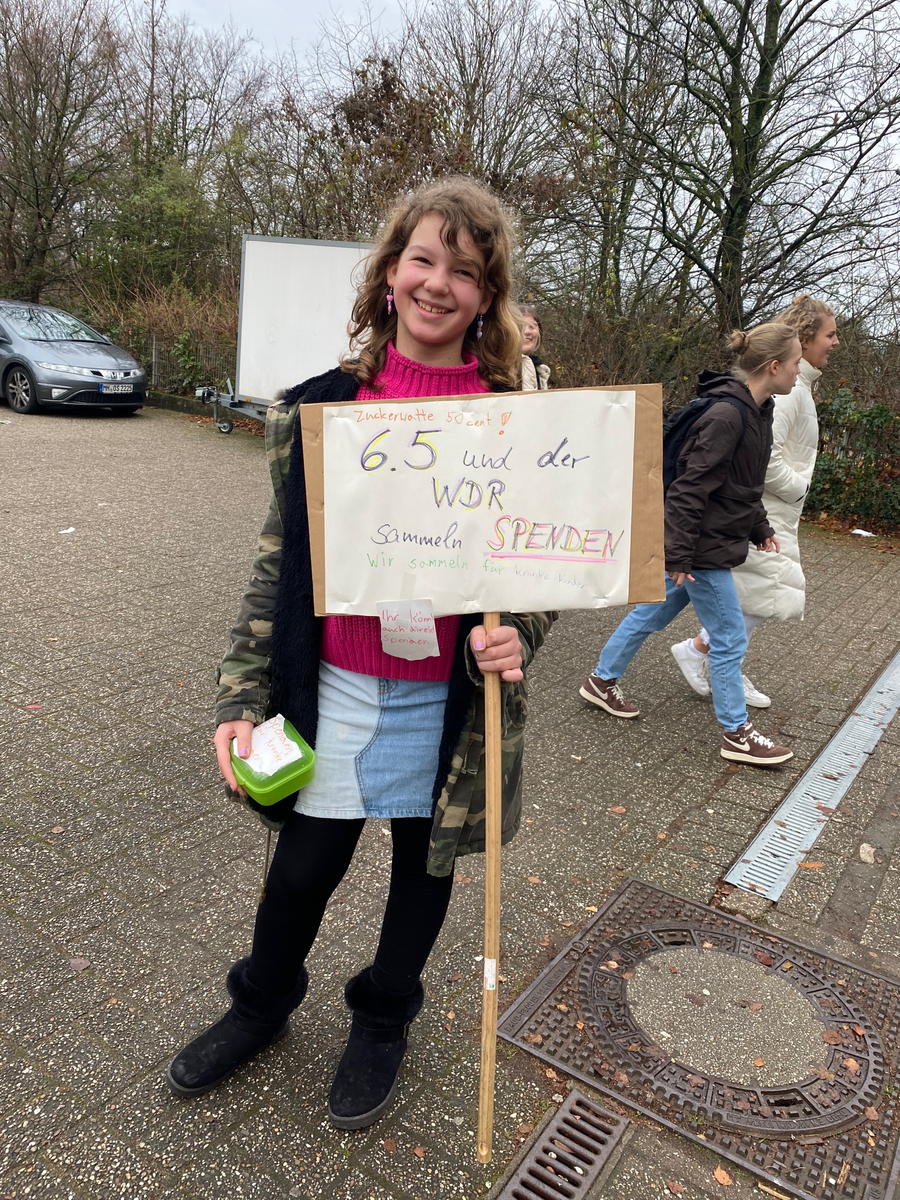 Zuckerwatte 50 cent !
6.5 und der
WDR
sammeln SPENDEN
Wir sammeln für kranke Kinder
Ihr könn
auch direkt
spenden